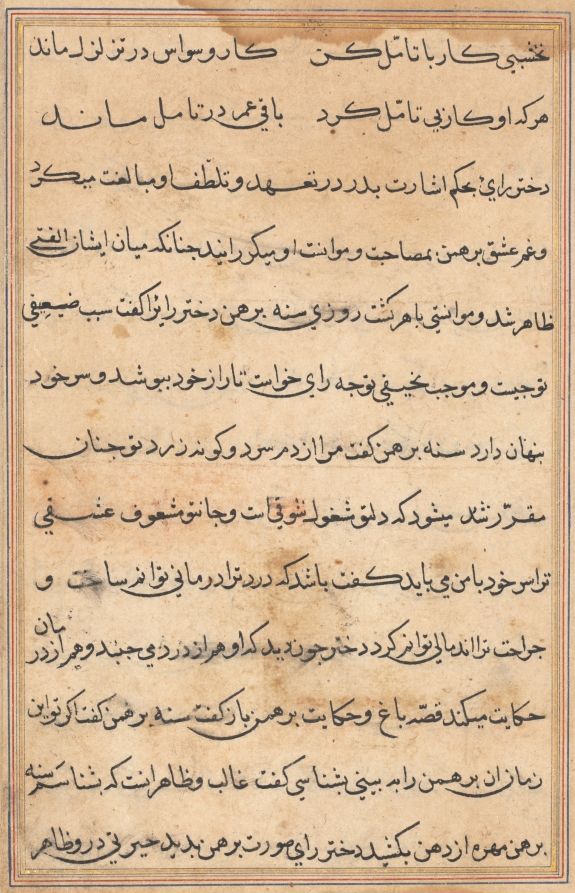 نخشبی کار با تامّل کن کار وسواس در تزلزل ماند
هرکه او کار بی تامّل کرد باقی عمر در تامل ماند
دختر رای بحکم اشارت پدر در تعهد و تلطّف او مبالغت میکرد
و غم عشق برهمن بمصاحبت و موانست او میکررانید چنانکه میان ایشان الفتی
ظاهر شد و موانستی باهر کشت روزی سنه برهمن دختر رای را کفت سبب ضیعیفی
تو چیست و موجب نحیفی تو چه رای خواست تا راز خود بپوشد و سر خود
پنهان دارد سنه برهمن کفت مرا از دم سرد و کونه زرد تو چنان
مقرّر شد میشود که دلتو مشغول شوقی است و جانتو مشعوف عشقی
ترا سر خود با من می باید کفت باشد که درد ترا درمانی توانم ساخت و
جراحت ترا اندمالی توانم کرد دختر چون دید که او هم از درد می جنبد و هم از درمان
حکایت میکند قصّه باغ و حکایت برهمن باز کفت سنه برهمن کفت اکر تو این
زمان ان برهمن را به بینی بشناسی کفت غالب و ظاهر انست که بشناسم سنه
برهمن مهره از دهن بکشید دختر رای صورت برهمن بدید حیرتی درو ظاهر